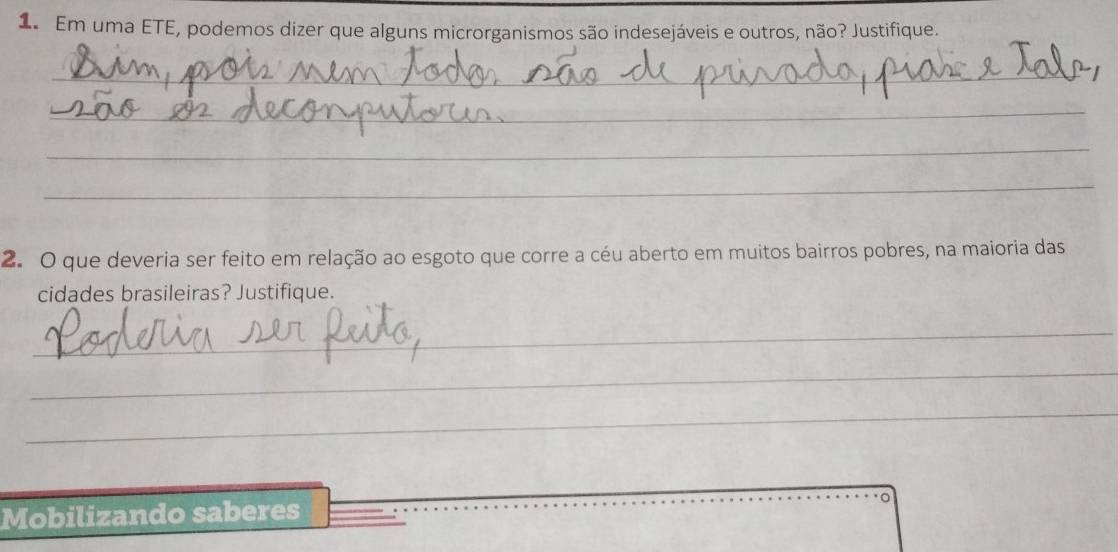 1. Em uma ETE, podemos dizer que alguns microrganismos são indesejáveis e outros, não? Justifique.
Sim, pois nem todos são de privada, e Tals,
são os decomputores.
2. O que deveria ser feito em relação ao esgoto que corre a céu aberto em muitos bairros pobres, na maioria das
cidades brasileiras? Justifique.
Poderia ser feito,
Mobilizando saberes